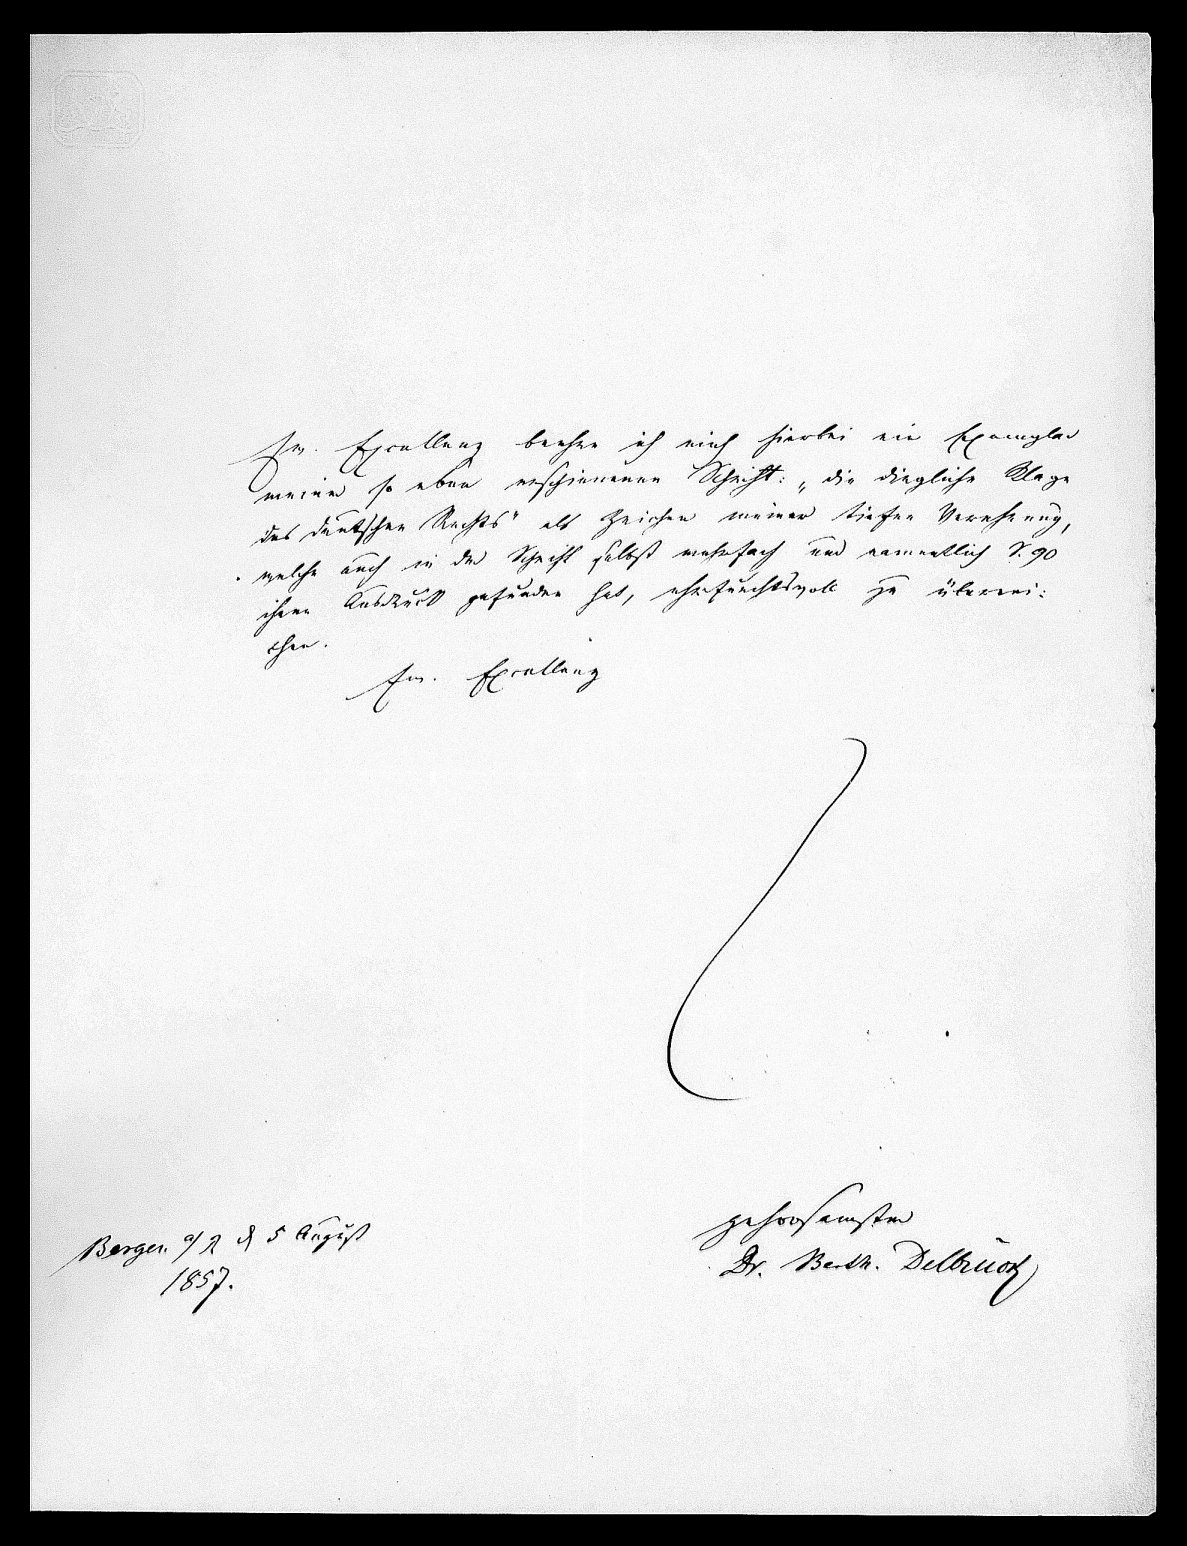 Ew. Excellenz beehre ich mich hierbei ein Exemplar
meiner so eben erschienenen Schrift: „die dingliche Klage
des deutschen Rechts" als Zeichen meiner tiefen Verehrung,
welche auch in der Schrift selbst mehrfach und namentlich S. 90
ihren Ausdruck gefunden hat, ehrfurchtsvoll zu überrei:
chen.
Ew. Excellenz
gehorsamster
Dr. Berth. Delbrück
Bergen a/R d 5 August
1857.